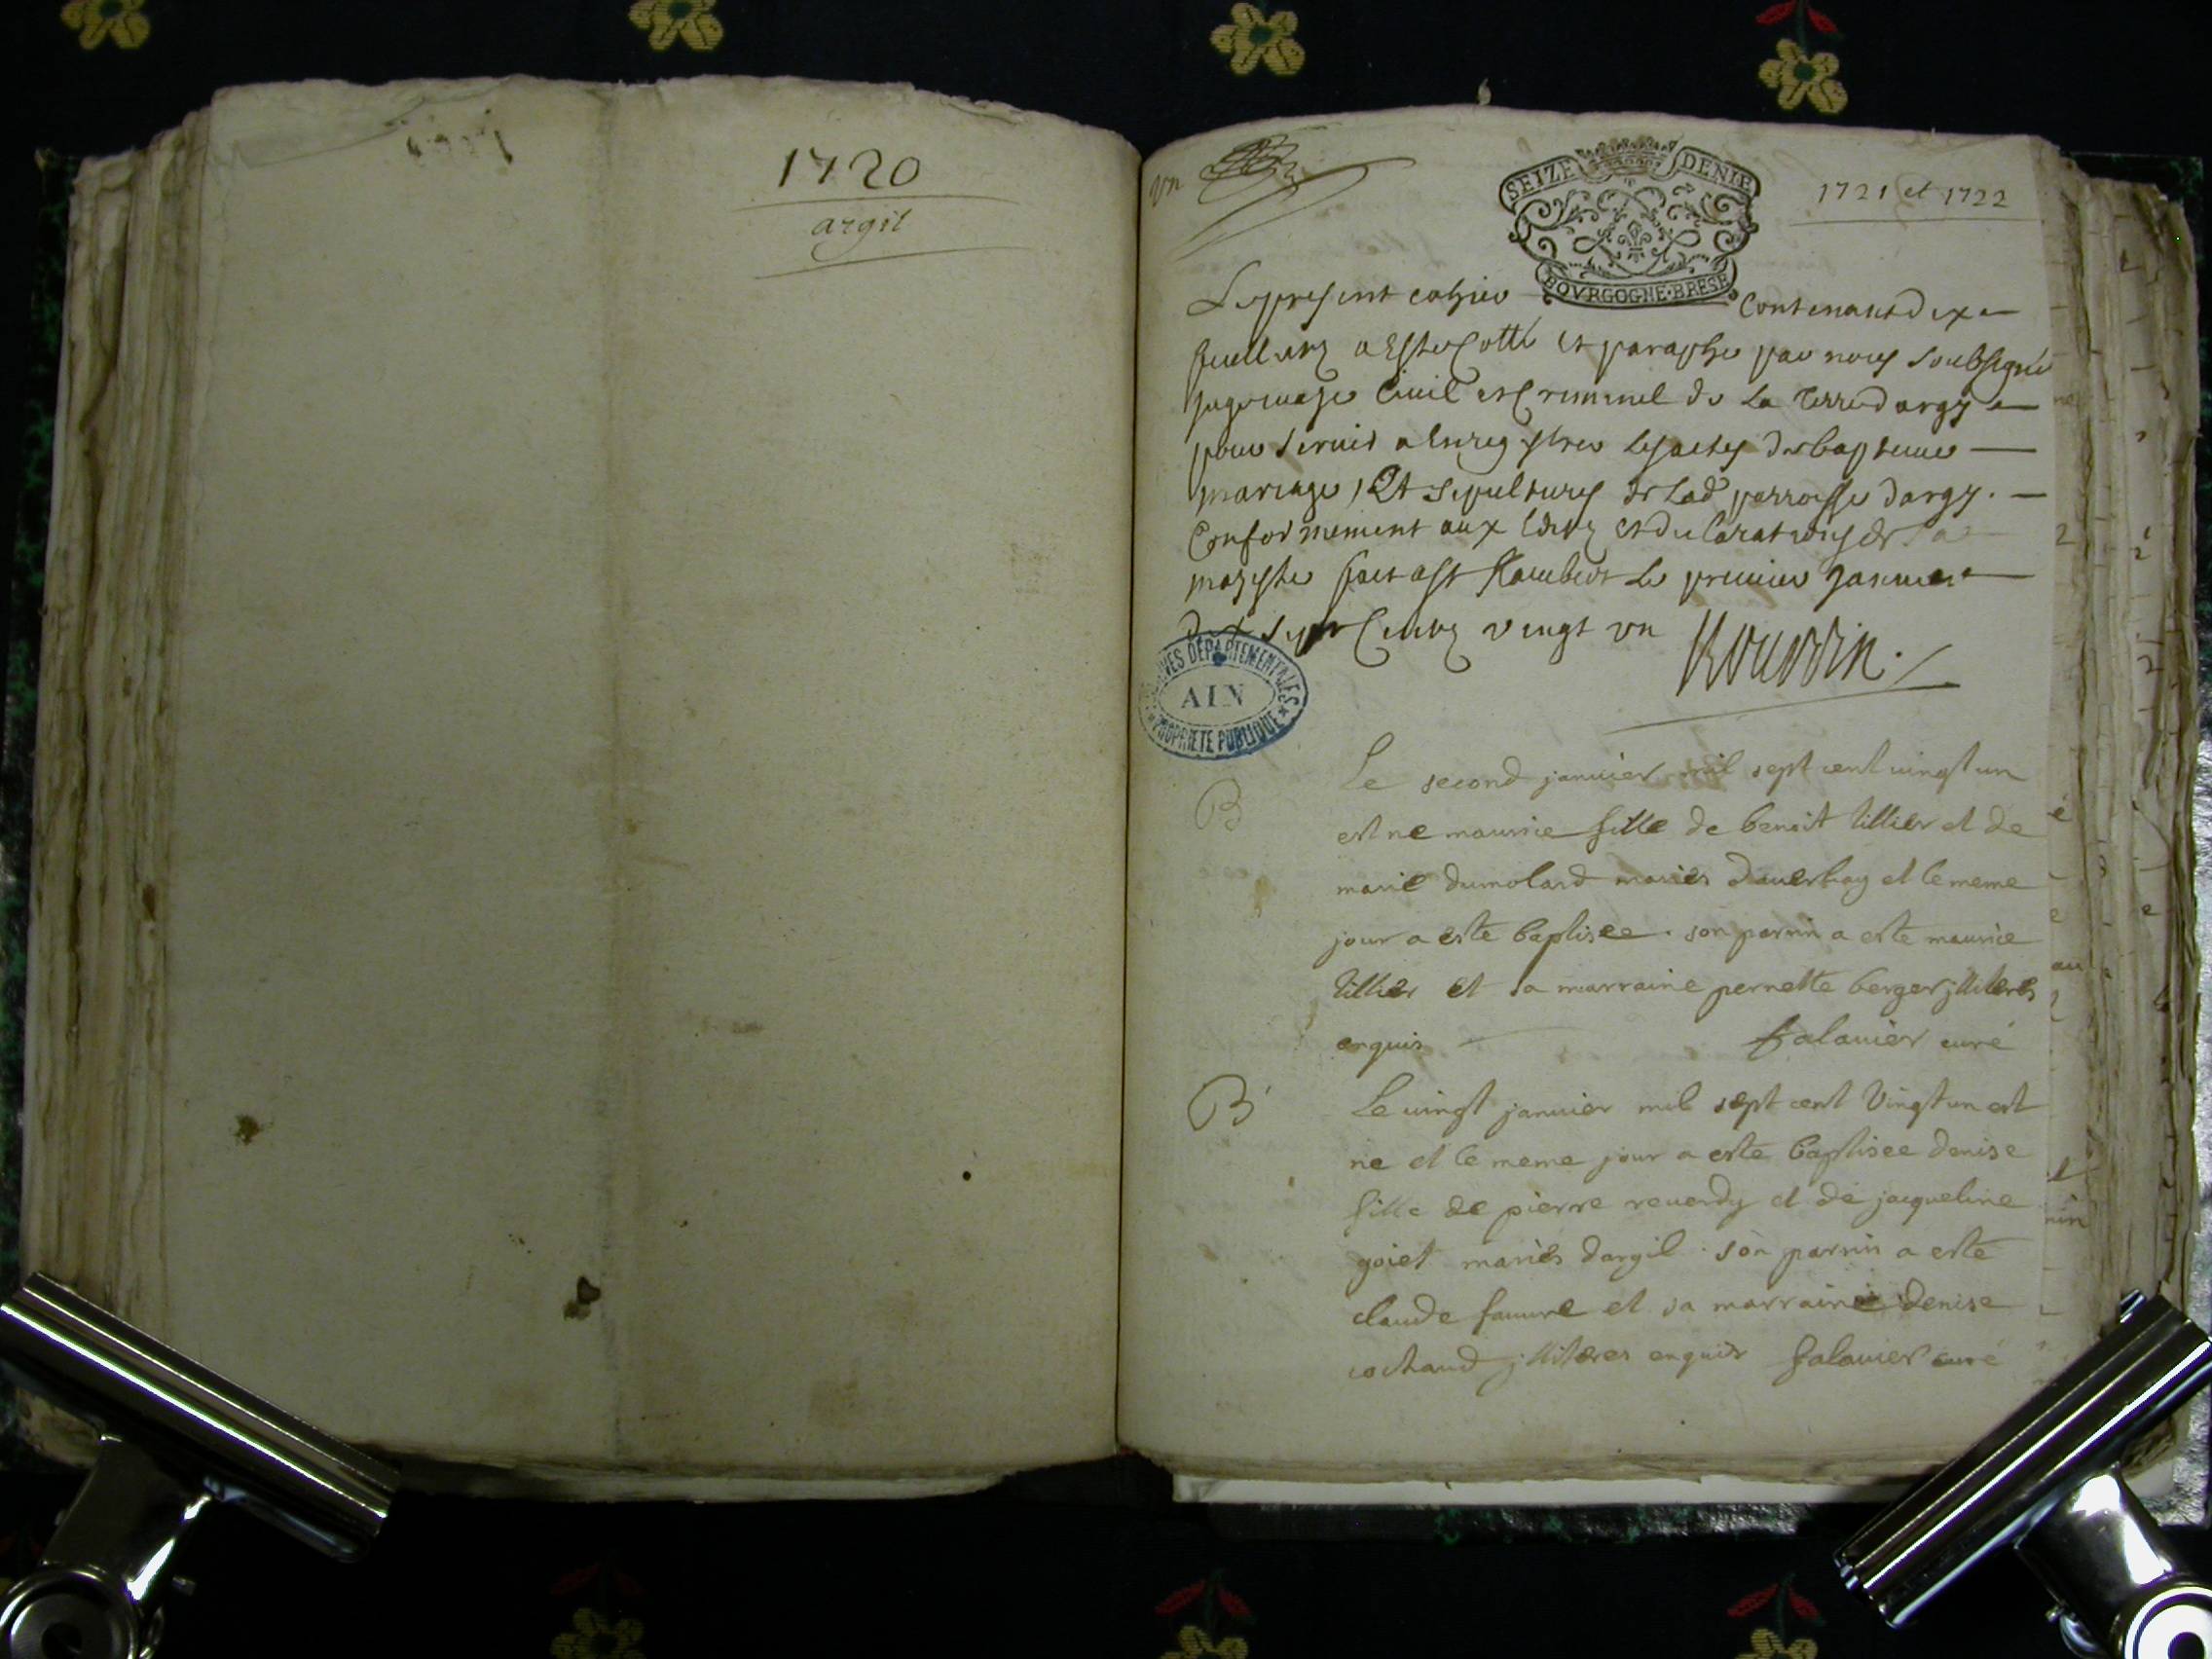 1720
argil
vn
SEIZE DENIE
1721 et 1722
BOVRGOGNE·BRESE
Le present cahier contenant dix
feuilletz a Esté Cotté et paraphé par nous soubsigné
juge mage Civil et Criminel de la terre dargy
pour servir a Enregystrer les actes de bapteme
mariage, Et sepultures de lad parroisse dargy.
Conformement aux Edits et declarations de sa
majesté fait a st Rambert le premier Janvier
dix sept Centz vingt vn
ARCHIVES DÉPARTEMENTALES
AIN
PROPRIÉTÉ PUBLIQUE
B
Le second januier mil sept cent uingt un
est ne maurice fille de benoit tillier et de
marie dumolard mariés et le meme
jour a este baptisee. son parrin a este maurice
tillier et sa marraine pernette berger jlliteres
enquis falauier curé
B
Le uingt januier mil sept cent Vingt un est
ne et le meme jour a este baptisee denise
fille de pierre reuerdy et de jacqueline
goiet mariés dargil. son parrin a este
claude fauure et sa marraine denise
cochand jlliteres enquis falauier curé